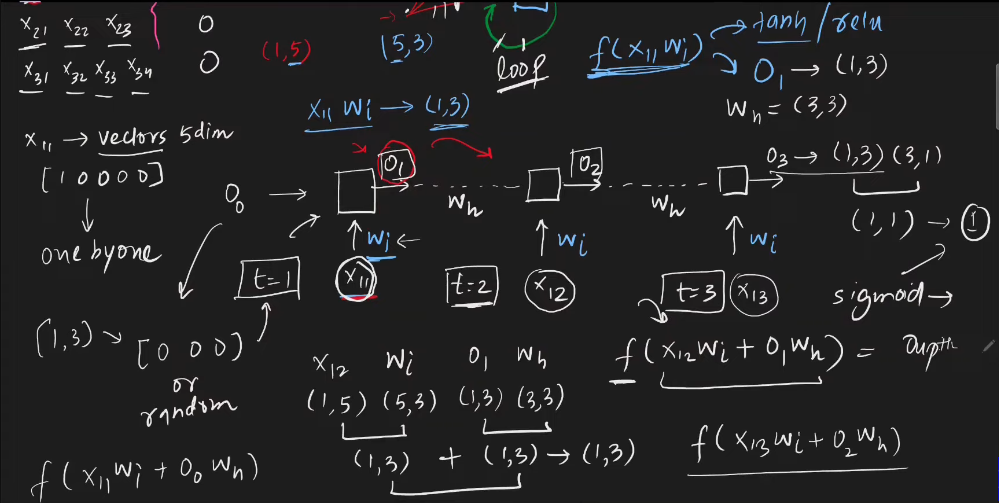 x21 x22 x23 0
x31 x32 x33 x34 0
(1,5) (5,3)
loop
f(x11 wi) → tanh / relu
O1 → (1,3)
wh = (3,3)
x11 wi → (1,3)
x11 → vectors 5dim
[1 0 0 0 0]
one by one
O0 → O1 wh O2 wh O3 → (1,3) (3,1)
(1,1) → 1
wi ← wi wi
t=1 x11 t=2 x12 t=3 x13
sigmoid →
(1,3) → [0 0 0]
or
random
f(x12 wi + O1 wh) =
x12 wi O1 wh
(1,5) (5,3) (1,3) (3,3)
(1,3) + (1,3) → (1,3)
f(x11 wi + O0 wh)
f(x13 wi + O2 wh)